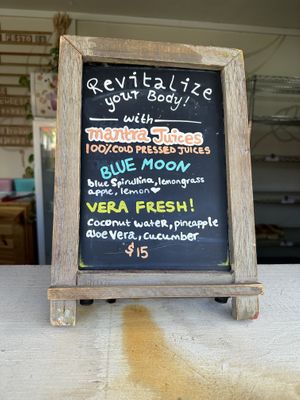 Revitalize
your Body!
with
mantra Juices
100% COLD PRESSED JUICES
BLUE MOON
blue spirulina, lemongrass
apple, lemon
VERA FRESH!
coconut water, pineapple
aloe vera, cucumber
$15